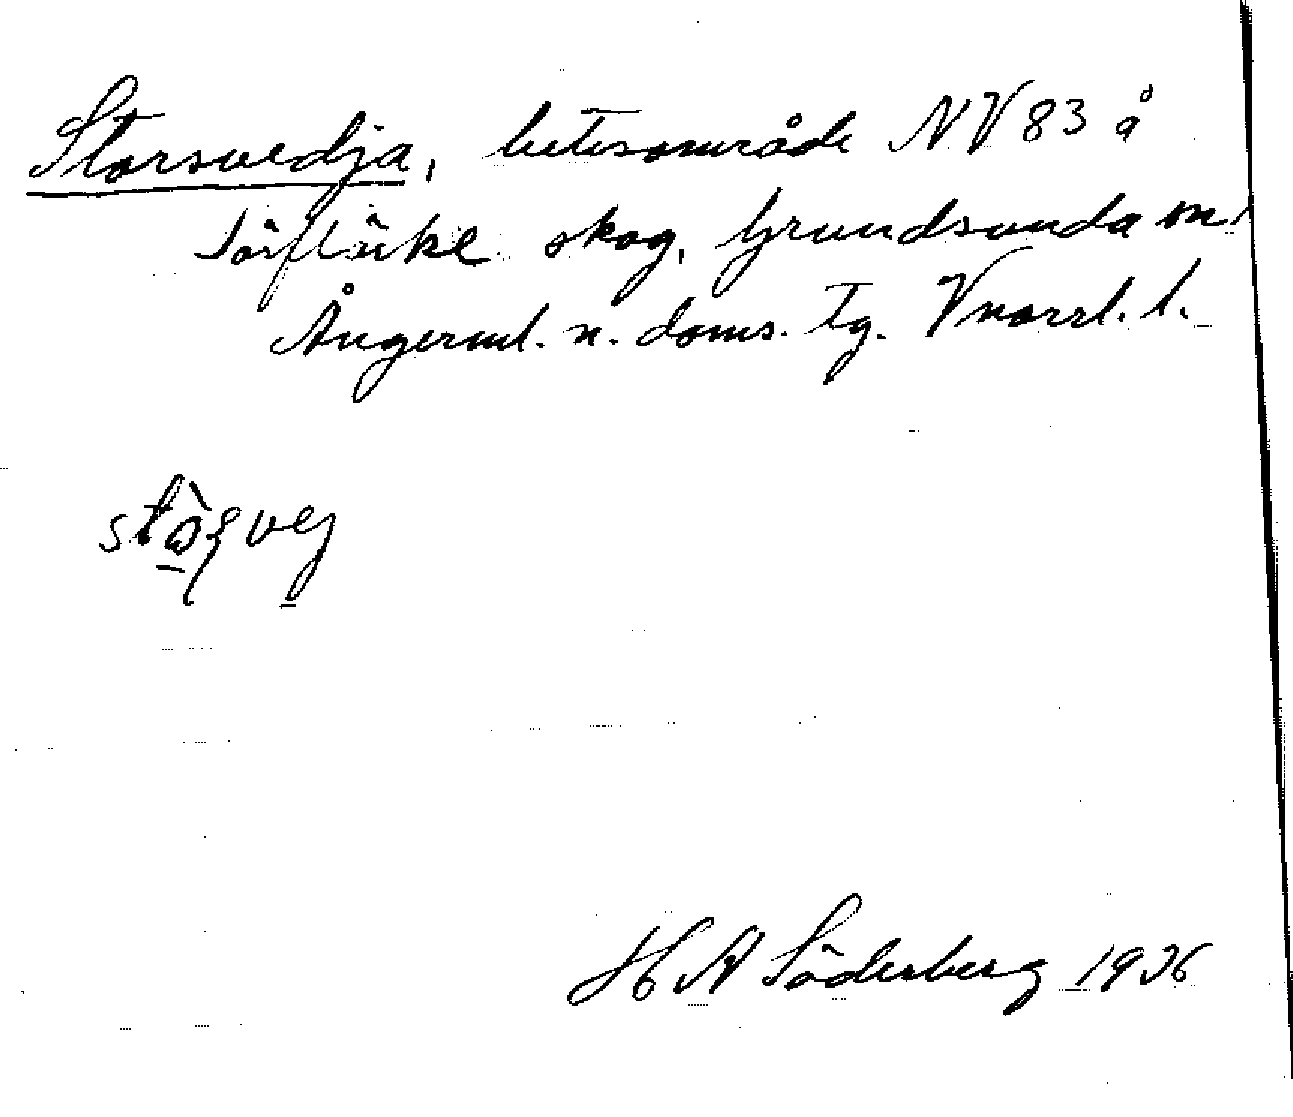 Storsvedja, betesområde NV 83 å
skog, Grundsunda sn.
Ångerml. n. doms. tg. Vnorrl. l.
H A Söderberg 1926